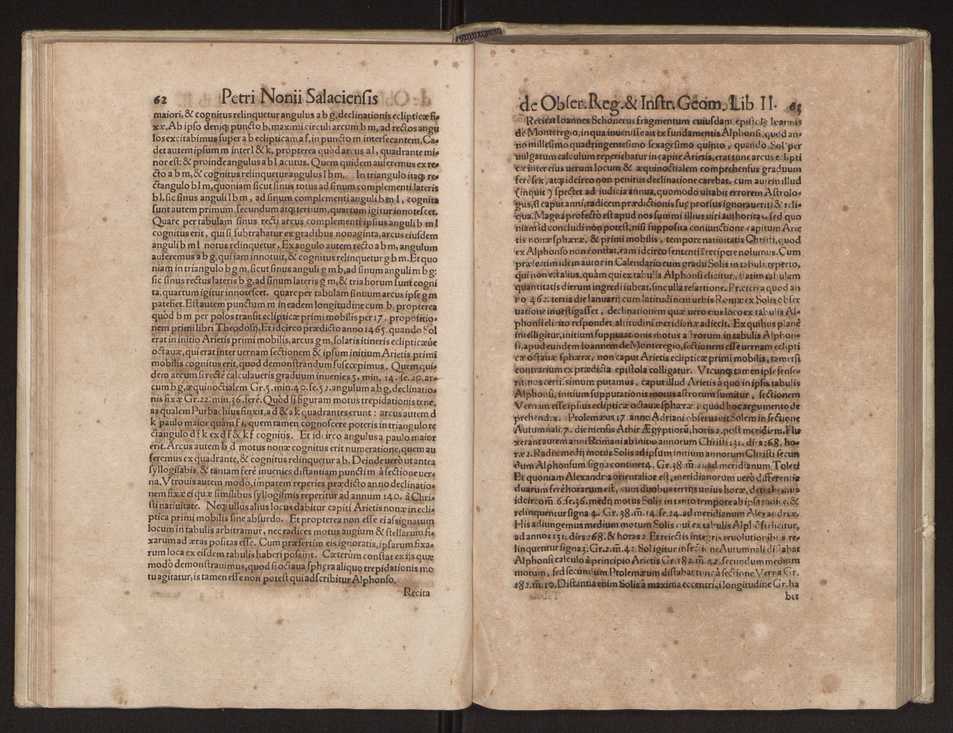 62 Petri Nonii Salaciensis
maiori, & cognitus relinquetur angulus a b g, declinationis eclipticæ fi-
xæ. Ab ipso deniq; puncto b, maximi circuli arcum b m, ad rectos angu
los excitabimus super a b eclipticam a f, in puncto m intersecantem. Ca-
det autem ipsum m inter l & k, propterea quod arcus a l, quadrante mi-
nor est: & proinde angulus a b l acutus. Quem quidem auferemus ex re-
cto a b m, & cognitus relinquetur angulus l b m. In triangulo itaq; re-
ctangulo b l m, quoniam sicut sinus totus ad sinum complementi lateris
b l, sic sinus anguli l b m, ad sinum complementi anguli b m l, cognita
sunt autem primum secundum atq; tertium, quartum igitur innotescet.
Quare per tabulam sinus recti arcus complementi ipsius anguli b m l
cognitus erit, qui si subtrahatur ex gradibus nonaginta, arcus eiusdem
anguli b m l notus relinquetur. Ex angulo autem recto a b m, angulum
auferemus a b g, qui iam innotuit, & cognitus relinquetur g b m. Et quo
niam in triangulo b g m, sicut sinus anguli g m b, ad sinum anguli m b g:
sic sinus rectus lateris b g, ad sinum lateris g m, & tria horum sunt cogni
ta, quartum igitur innotescet. quare per tabulam sinuum arcus ipse g m
patefiet. Est autem punctum m in eadem longitudine cum b, propterea
quod b m per polos transit eclipticæ primi mobilis per 17. propositio-
nem primi libri Theodosij. Et idcirco prædicto anno 1465. quando Sol
erat in initio Arietis primi mobilis, arcus g m, solaris itineris eclipticæue
octauæ, qui erat inter uernam sectionem & ipsum initium Arietis primi
mobilis cognitus erit, quod demonstrandum suscepimus. Quem qui-
dem arcum si recte calculaueris graduum inuenies 5. min. 14. se. 20. ar-
cum b g, æquinoctialem Gr. 5. min. 40. se. 52. angulum a b g, declinatio-
nis fixæ Gr. 22. min. 36. fere. Quòd si figuram motus trepidationis tene-
as qualem Purbachius finxit, a d & a k quadrantes erunt: arcus autem d
k paulo maior quàm f i, quem tamen cognoscere poteris in triangulo re
ctangulo d f k ex d f & k f cognitis. Et idcirco angulus a paulo maior
erit. Arcus autem b d motus nonæ cognitus erit numeratione, quem au
feremus ex quadrante, & cognitus relinquetur a b. Deinde uero ut antea
syllogisabis, & tantam fere inuenies distantiam punctim à sectione uer-
na. Vtrouis autem modo, imparem reperies prædicto anno declinatio-
nem fixæ ei quæ similibus syllogismis reperitur ad annum 140. à Chri-
sti natiuitate. Neq; ullus alius locus dabitur capiti Arietis nonæ in ecli-
ptica primi mobilis sine absurdo. Et propterea non esse ei assignatum
locum in tabulis arbitramur, nec radices motus augium & stellarum fi-
xarum ad æras positas esse. Cum præsertim eis ignoratis, ipsarum fixa-
rum loca ex eisdem tabulis haberi possint. Cæterum constat ex iis quæ
modò demonstrauimus, quod si octaua sphæra aliquo trepidationis mo
tu agitatur, is tamen esse non potest qui adscribitur Alphonso.
Recita
de Obser. Reg. & Instr. Geom. Lib II. 63
Recitat Ioannes Schonerus fragmentum cuiusdam epistolæ Ioannis
de Monteregio, in qua inuenisse ait ex fundamentis Alphonsi, quod an-
no millesimo quadringentesimo sexagesimo quinto, quando Sol per
uulgatum calculum reperiebatur in capite Arietis, erat tunc arcus eclipti
cæ inter eius uerum locum & æquinoctialem comprehensus graduum
fere sex, atq; idcirco non penitus declinatione carebat. cum autem illud
(inquit) spectet ad iudicia annua, quomodo uitabit errorem Astrolo-
gus, si caput anni, radicem prædictionis suæ prorsus ignorauerit? & reli-
qua. Magna profecto est apud nos summi illius uiri authoritas, sed quo
niam id concludi non potest, nisi supposita coniunctione capitum Arie
tis nonæ sphæræ, & primi mobilis, tempore natiuitatis Christi, quod
ex Alphonso non constat, eam idcirco sententiam recipere nolumus. Cum
præsertim idem autor in Calendario cum gradu Solis in tabulis reperto,
qui non est alius, quàm qui ex tabulis Alphonsi elicitur, statim tabulam
quantitatis dierum ingredi iubeat, sine ulla refractione. Præterea quod an
no 1462. tertia die Ianuarij cum latitudinem urbis Romæ ex Solis obser
uatione inuestigasset, declinationem quæ uero eius loco ex tabulis Al-
phonsi elicito respondet, altitudini meridianæ adiecit. Ex quibus plane
intelligitur, initium supputationis motus astrorum in tabulis Alphon-
si, apud eundem Ioannem de Monteregio, sectionem esse uernam eclipti
cæ octauæ sphæræ, non caput Arietis eclipticæ primi mobilis, tametsi
contrarium ex prædicta epistola colligatur. Vtcunq; tamen ipse sense-
rit, nos certissimum putamus, caput illud Arietis à quo in ipsis tabulis
Alphonsi, initium supputationis motus astrorum sumitur, sectionem
Vernam esse ipsius eclipticæ octauæ sphæræ: quod hoc argumento de
prehendes. Ptolemæus 17. anno Adriani obseruauit Solem in sectione
Autumnali 7. die mensis Athir Ægyptiorum, horis 2. post meridiem. Flu
xerant autem anni Romani ab initio annorum Christi 131. dies 268. ho-
ræ 2. Radix medij motus Solis ad ipsum initium annorum Christi secun
dum Alphonsum signa continet 4. Gr. 38. m̃. ad meridianum Toleti
Et quoniam Alexandria orientalior est, meridianorum uerò differentia
duarum fere horarum est,
ideirco m̃. 6. se. 36. medij motus Solis in tanto tempore ab ipsa radice, &
relinquentur signa 4. Gr. 38. m̃. 14. se. 24. ad meridianum Alexandriæ.
His adiungemus medium motum Solis qui ex tabulis Alphonsi elicitur,
ad annos 131. dies 268. & horas 2. Et reiectis integris reuolutionibus re-
linquentur signa 3. Gr. 2. m̃. 42. Sol igitur in sectione Autumnali distabat
Alphonsi calculo à principio Arietis Gr. 182. m̃. 42. secundum medium
motum, sed secundum Ptolemæum distabat tunc à sectione Verna Gr.
182. m̃. 10. Distantia enim Solis à maxima eccentrici longitudine Gr. ha
bet